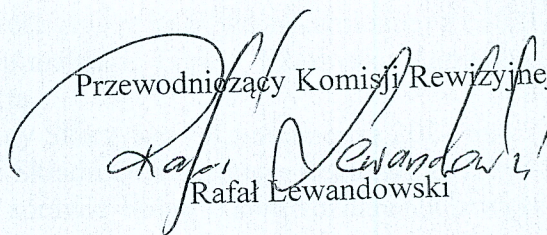 Przewodniczący Komisji Rewizyjnej
Rafał Lewandowski
Rafał Lewandowski